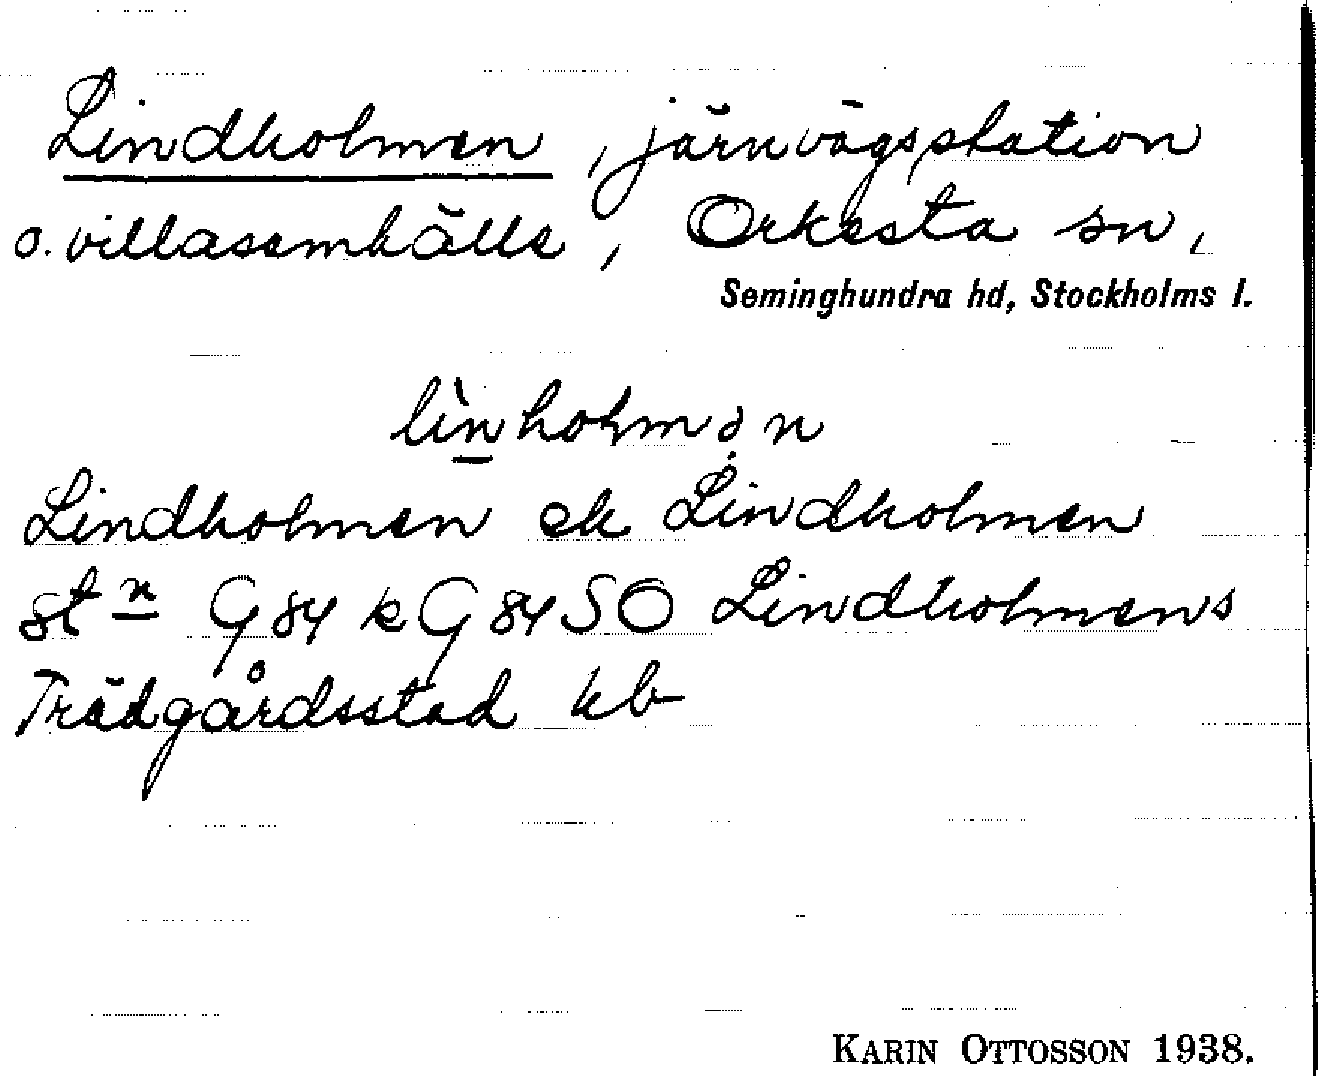 Lindholmen, järnvägsstation
o. villasamhälle, Orkesta sn,
Seminghundra hd, Stockholms l.
lìnholmən
Lindholmen ek Lindholmen
stn G84 k G84SO Lindholmens
Trädgårdsstad kb
KARIN OTTOSSON 1938.